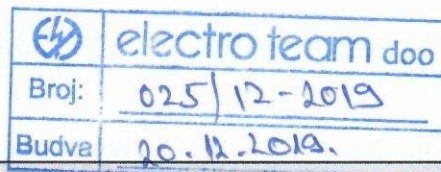 electro team doo
Broj: 025/12-2019
Budva 20.12.2019.